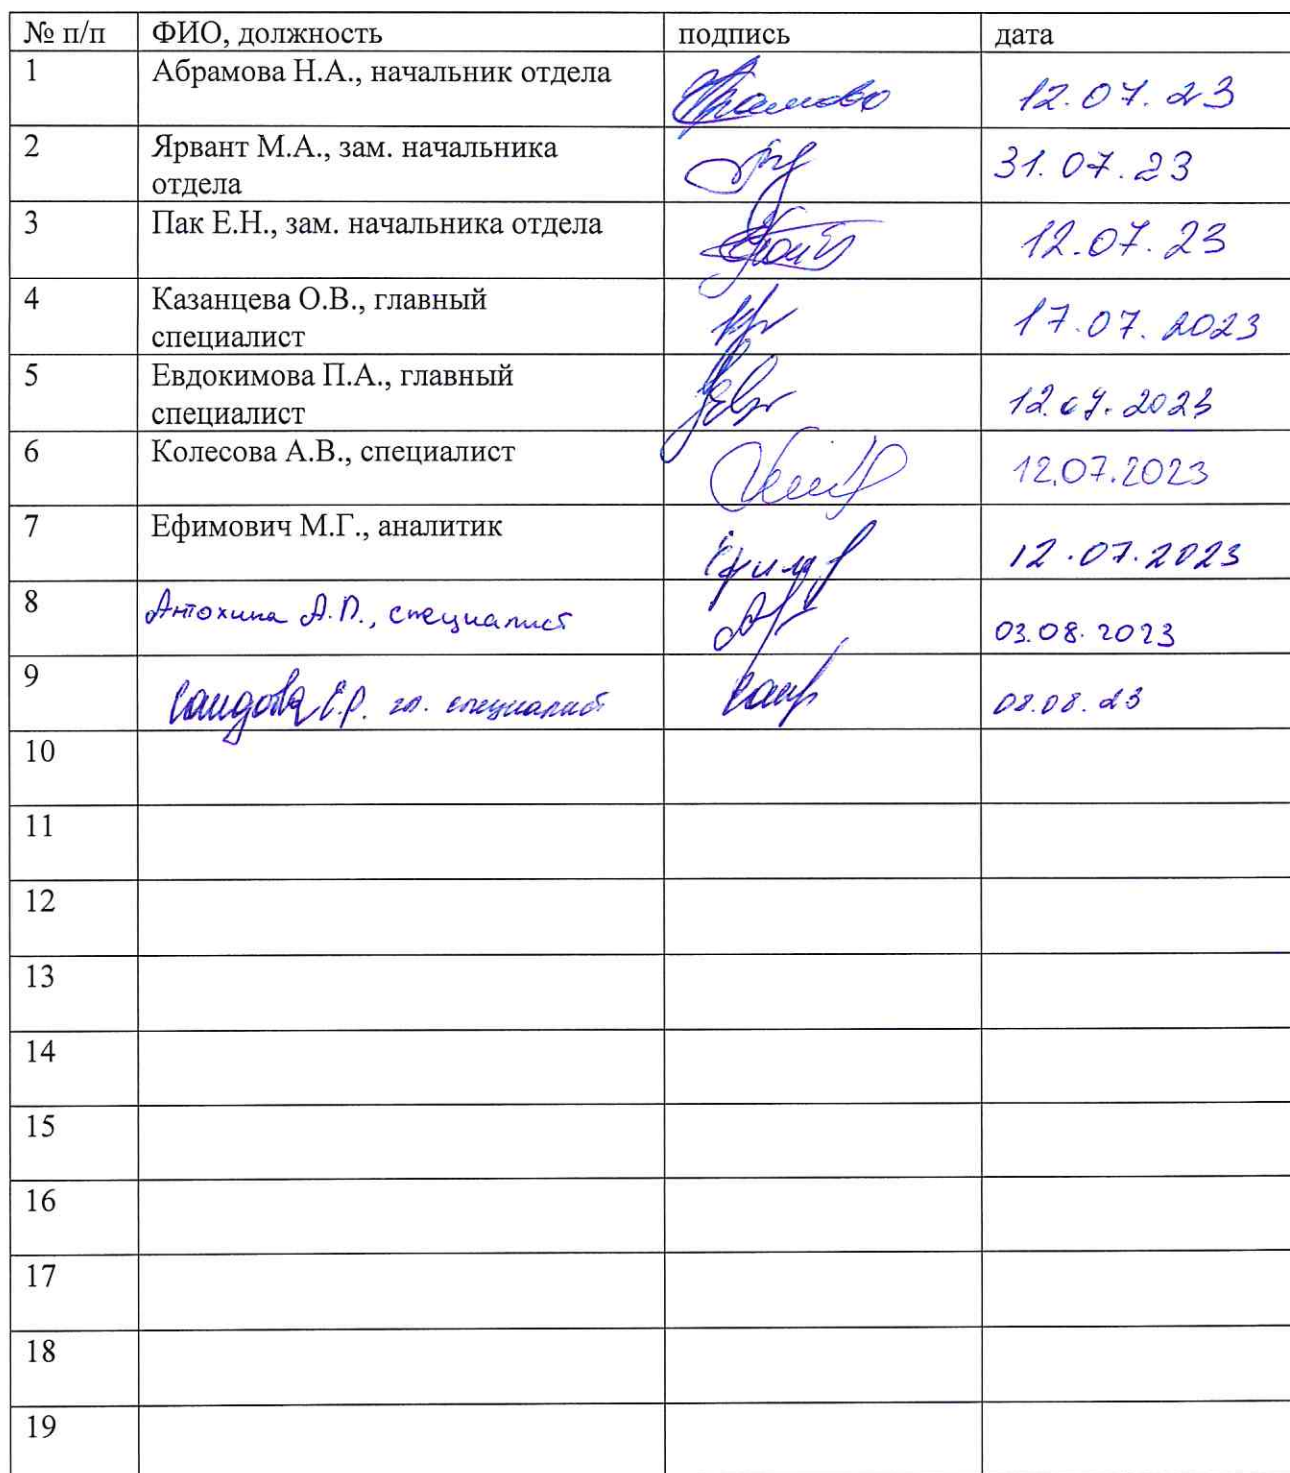 № п/п ФИО, должность подпись дата
1 Абрамова Н.А., начальник отдела 12.07.23
2 Ярвант М.А., зам. начальника
отдела 31.07.23
3 Пак Е.Н., зам. начальника отдела 12.07.23
4 Казанцева О.В., главный
специалист 17.07.2023
5 Евдокимова П.А., главный
специалист 12.07.2023
6 Колесова А.В., специалист 12.07.2023
7 Ефимович М.Г., аналитик 12.07.2023
8 Антохина А.П., специалист 03.08.2023
9 Саидова Е.Р. гл. специалист 08.08.23
10
11
12
13
14
15
16
17
18
19